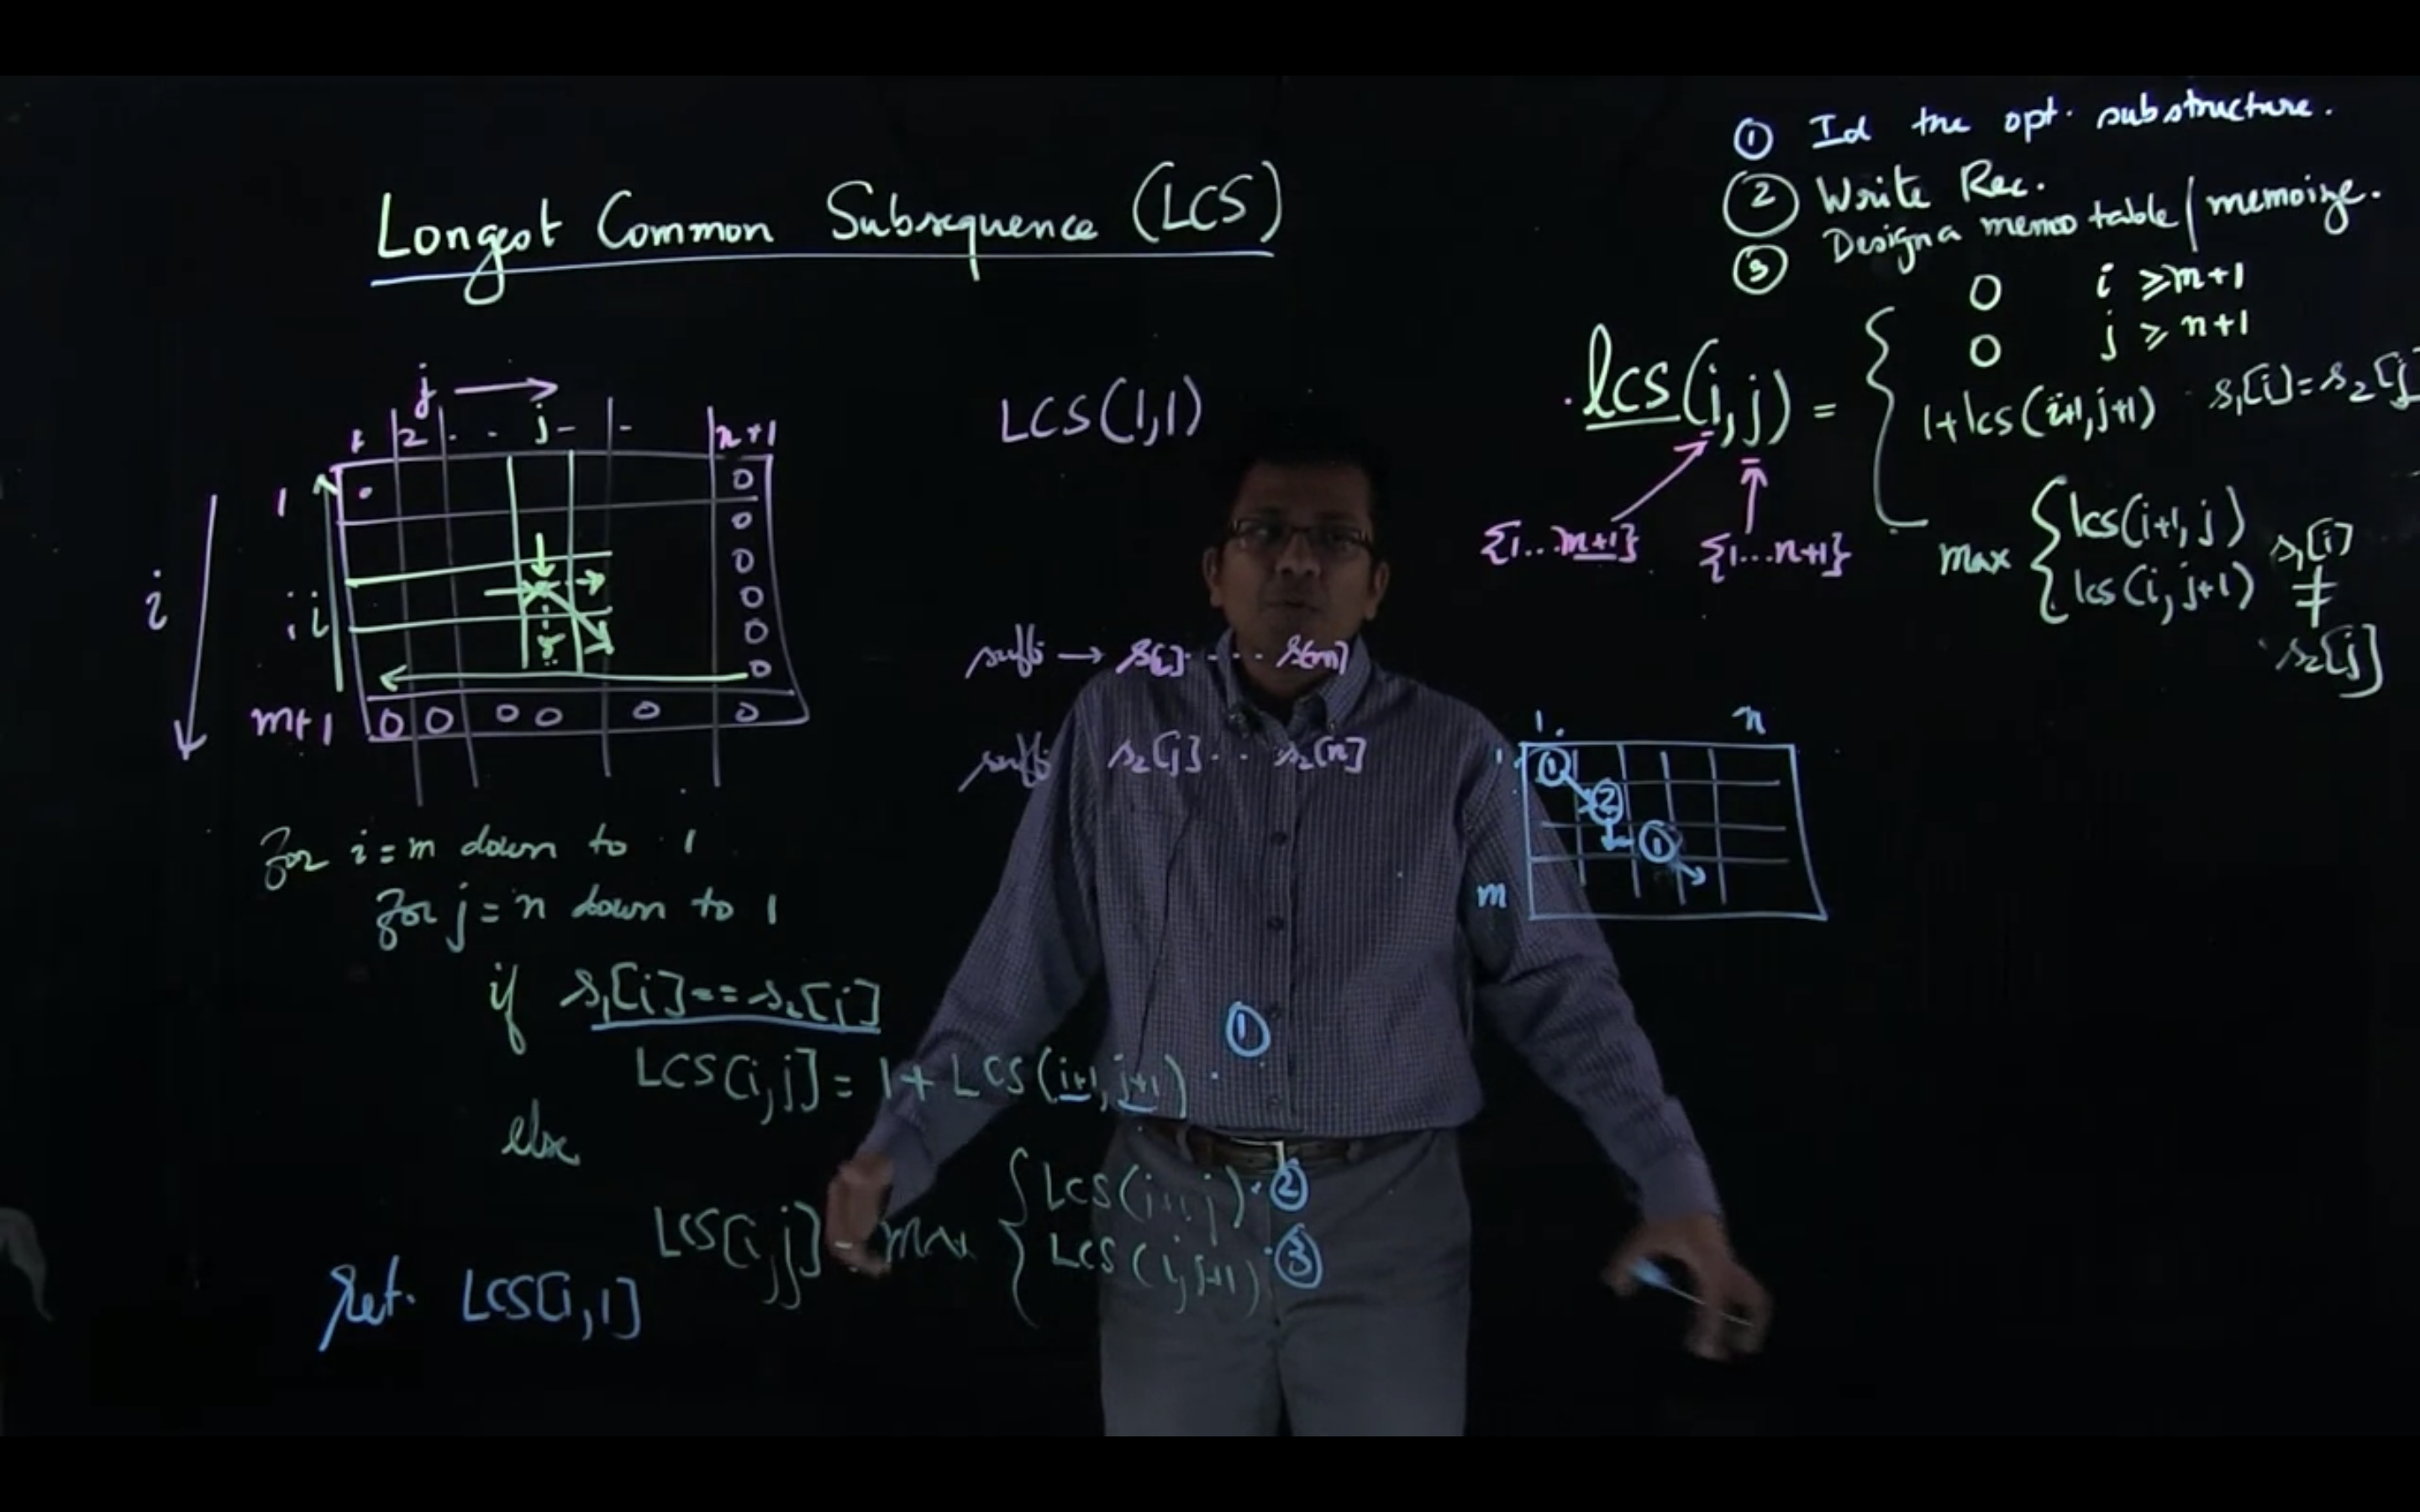 Longest Common Subsequence (LCS)
① Id the opt. substructure.
② Write Rec.
③ Design a memo table / memoize.
lcs(i,j) = {
0 i ≥ m+1
0 j ≥ n+1
1+lcs(i+1,j+1) s₁[i]=s₂[j
max { lcs(i+1,j)
lcs(i,j+1)
s₁[i]
≠
s₂[j]
{1...m+1} {1...n+1}
j →
1 2 . . j - - n+1
1 0
0
0
i i 0
0
0
m+1 0 0 0 0 0 0
LCS(1,1)
suff → s[i] . . . s[m]
suff s₂[j] . . s₂[n]
1 . n
1 ①
②
①
m
for i = m down to 1
for j = n down to 1
if s₁[i] == s₂[j]
①
LCS[i,j] = 1 + LCS(i+1,j+1)
else
LCS[i,j] = max { LCS(i+1,j) ②
LCS(i,j+1) ③
ret. LCS[1,1]